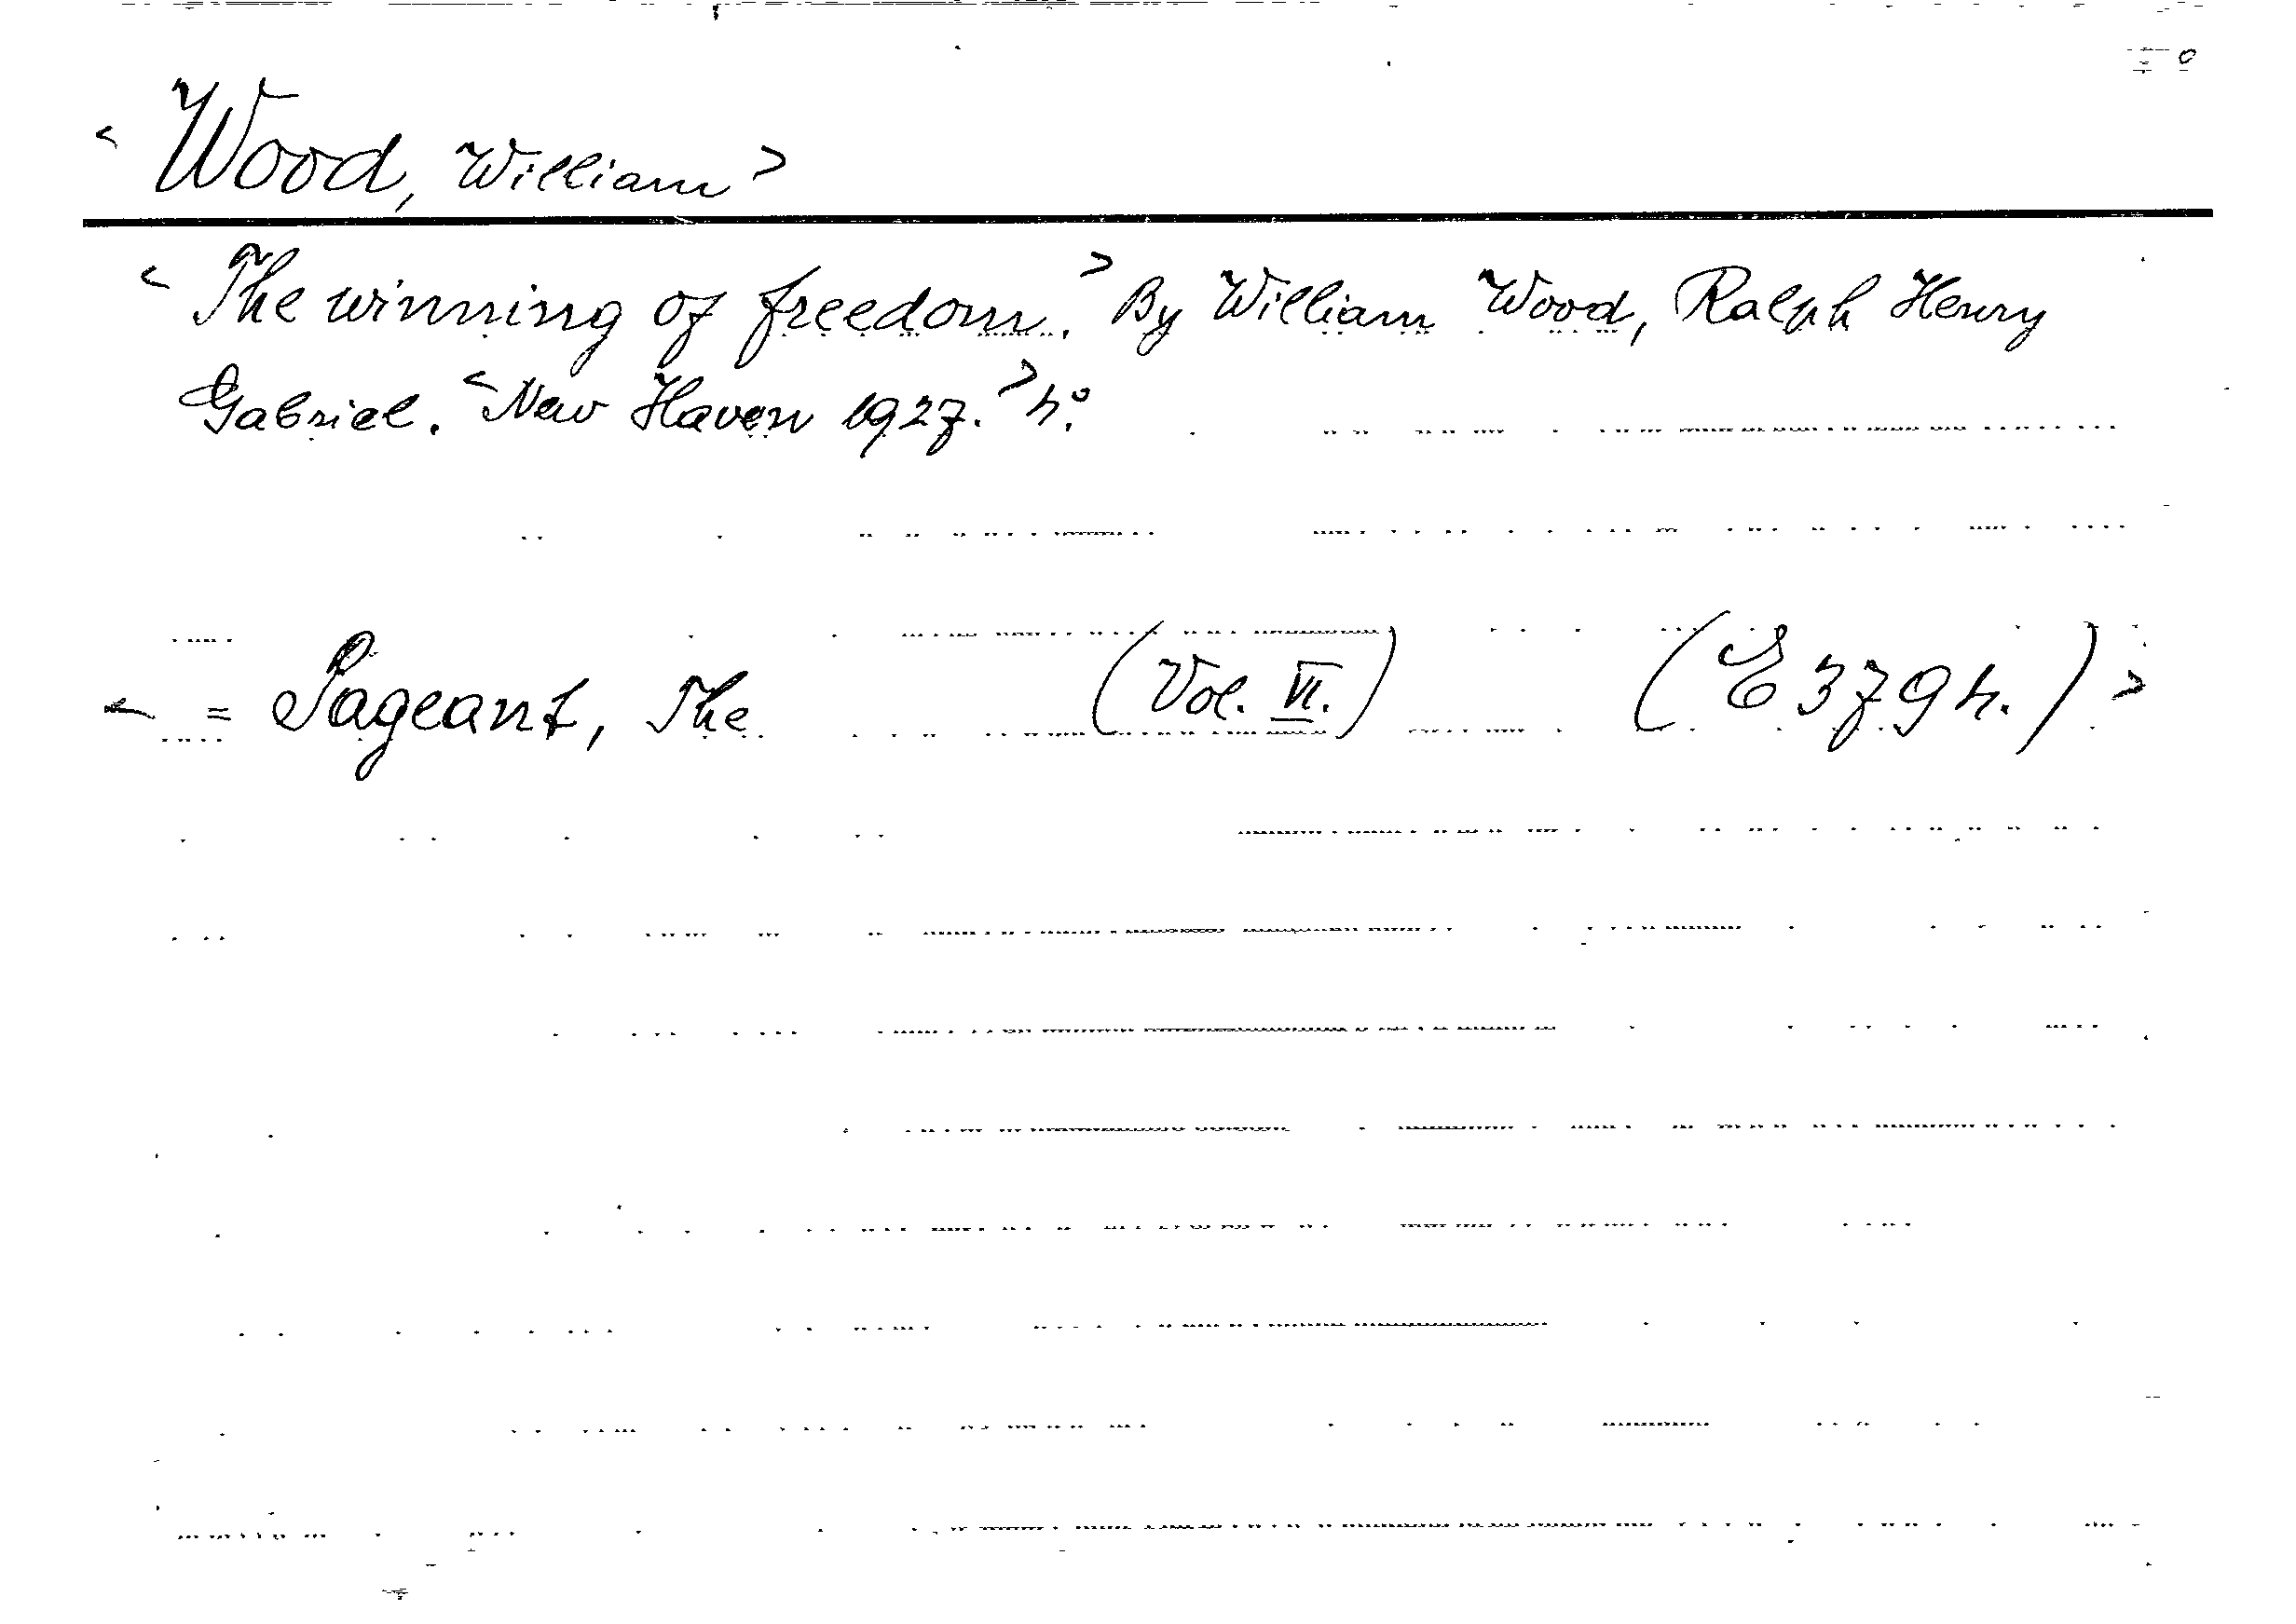 < Wood, William >
< The winning of freedom. > By William Wood, Ralph Henry
Gabriel. < New Haven 1927. > 4º.
< = Pageant, The (Vol. VI.) (E 379 h.) >